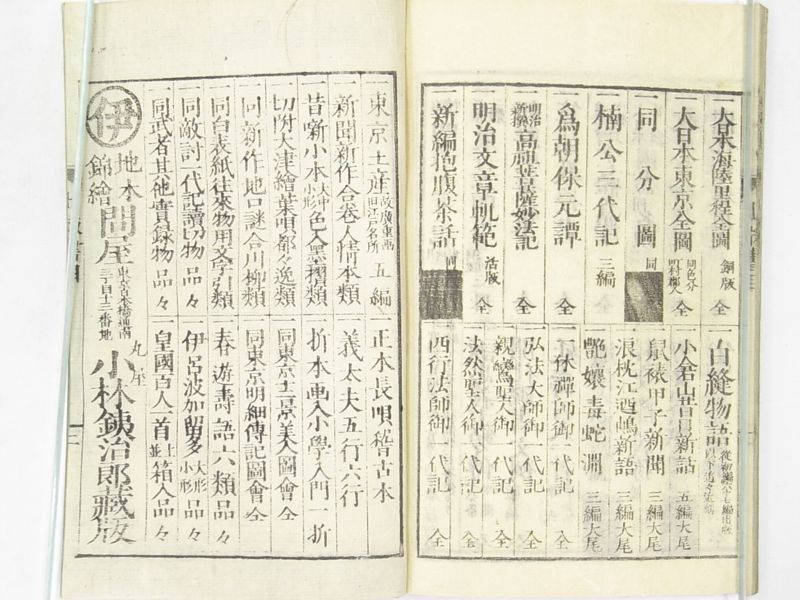 一大日本海陸里程全圖 銅版
一大日本東京全圖 同色分 町村郷入 全
一同分圖 同
一楠公三代記 三編
一爲朝保元譚 全
一明治新撰高祖菩薩妙法記 全
一明治文章軌範 活版 全
一新編抱腹茶話 同
一白縫物語
一小倉山昔日新話 五編大尾
一鼠裱甲子新聞 三編大尾
一浪枕江酒嶋新語 三編大尾
艶嬢毒蛇淵 三編大尾
一一休禪師御一代記 全
一弘法大師御一代記 全
一親鸞聖人御一代記 全
一法然聖人御一代記 全
一西行法師御一代記 全
一東京土産 故廣重画 旧江戸名所 五編
一新聞新作合巻人情本類
一昔噺小本 大中小形 色入墨摺類
一切附大津繪葉唄都々逸類
一同新作地口謎合川柳類
一同白表紙往來物用文字引類
一同敵討一代記讀切物品々
一同武者其他實録物品々
一正本長唄稽古本
一義太夫五行六行
一折本画入小學入門一折
一同東京土京美人圖會 全
一同東京明細傳記圖會 全
一春遊壽語六類品々
一伊呂波加留多 大形 小形 品々
一皇國百人一首 上並 箱入品々
伊
地本
錦繪
問屋
東京日本橋通南
三丁目十三番地
丸屋
小林鉄治郎藏版